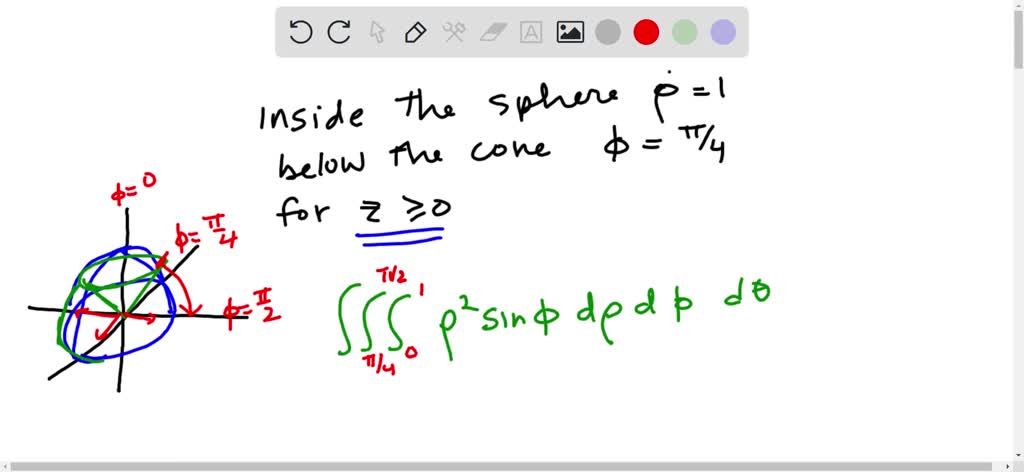 Inside the sphere ρ = 1
below the cone ϕ = π/4
for z ≥ 0
ϕ = 0
ϕ = π/4
ϕ = π/2
∫∫_{π/4}^{π/2}∫_0^1 ρ² sin ϕ dρ dϕ dθ
A